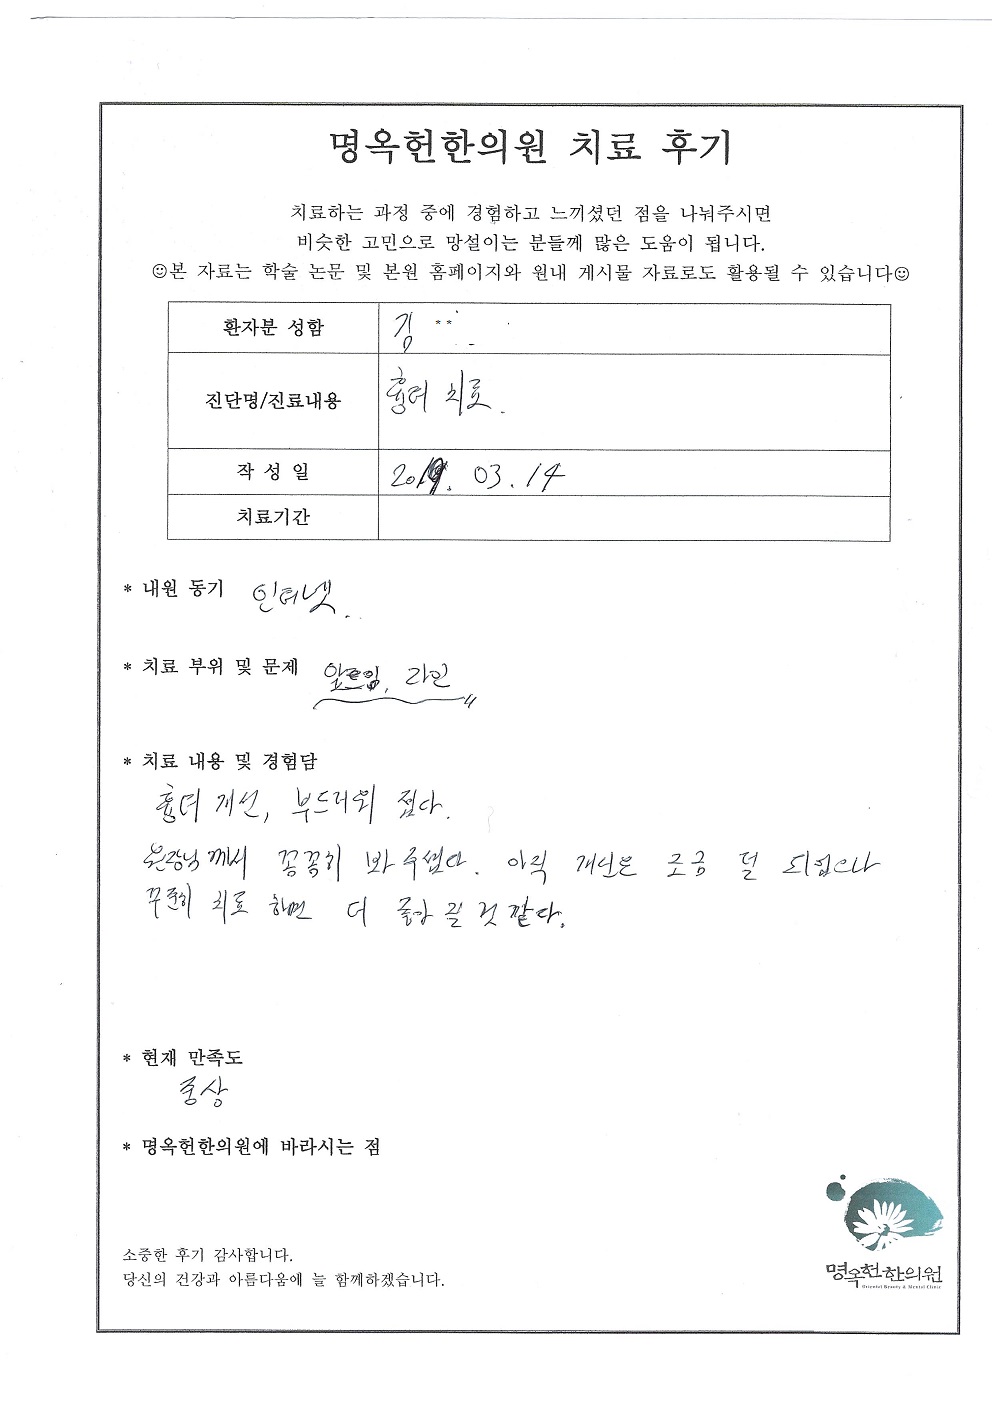 명옥헌한의원 치료 후기
치료하는 과정 중에 경험하고 느끼셨던 점을 나눠주시면
비슷한 고민으로 망설이는 분들께 많은 도움이 됩니다.
☺본 자료는 학술 논문 및 본원 홈페이지와 원내 게시물 자료로도 활용될 수 있습니다☺
환자분 성함 김 **
진단명/진료내용 흉터 치료.
작 성 일 2019. 03. 14
치료기간
* 내원 동기 인터넷.
* 치료 부위 및 문제 앞트임, 라인
* 치료 내용 및 경험담
흉터 개선, 부드러워 졌다.
원장님께서 꼼꼼히 봐주셨다. 아직 개선은 조금 덜 되었으나
꾸준히 치료 하면 더 좋아 질 것 같다.
* 현재 만족도
중상
* 명옥헌한의원에 바라시는 점
소중한 후기 감사합니다.
당신의 건강과 아름다움에 늘 함께하겠습니다.
명옥헌한의원
Oriental Beauty & Mental Clinic